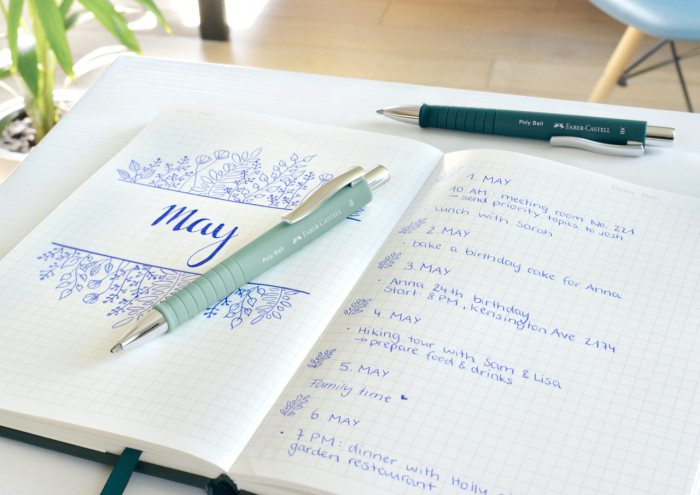 May
Poly Ball FABER-CASTELL XB
Poly Ball FABER-CASTELL
1. MAY
10 AM: meeting room No. 221
→ send priority topics to Josh
Lunch with Sarah
2. MAY
• bake a birthday cake for Anna
3. MAY
• Anna 24th birthday
Start: 8 PM, Kensington Ave 2174
4. MAY
• Hiking tour with Sam & Lisa
→ prepare food & drinks
5. MAY
Family time ♥
6 MAY
• 7 PM: dinner with Holly
garden restaurant